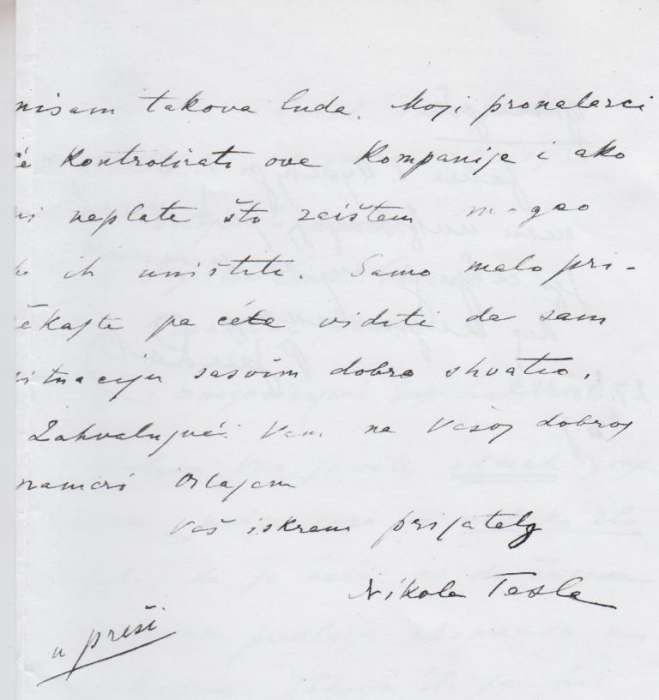 nisam takova luda. Moji pronalazci
će kontrolirati ove kompanije i ako
mi neplate što zaištem mogao
ih uništiti. Samo malo pri-
čekajte pa ćete viditi da sam
situaciju sasvim dobro shvatio.
Zahvalujući Vam na Vašoj dobroj
nameri ostajem
Vaš iskreni prijatelj
Nikola Tesla
u preši